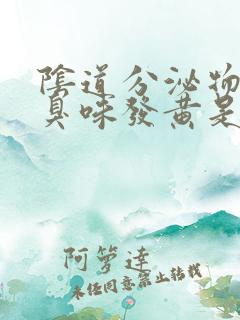 陰道分泌物
臭味發黃是
阿籮達
未經同意禁止轉載